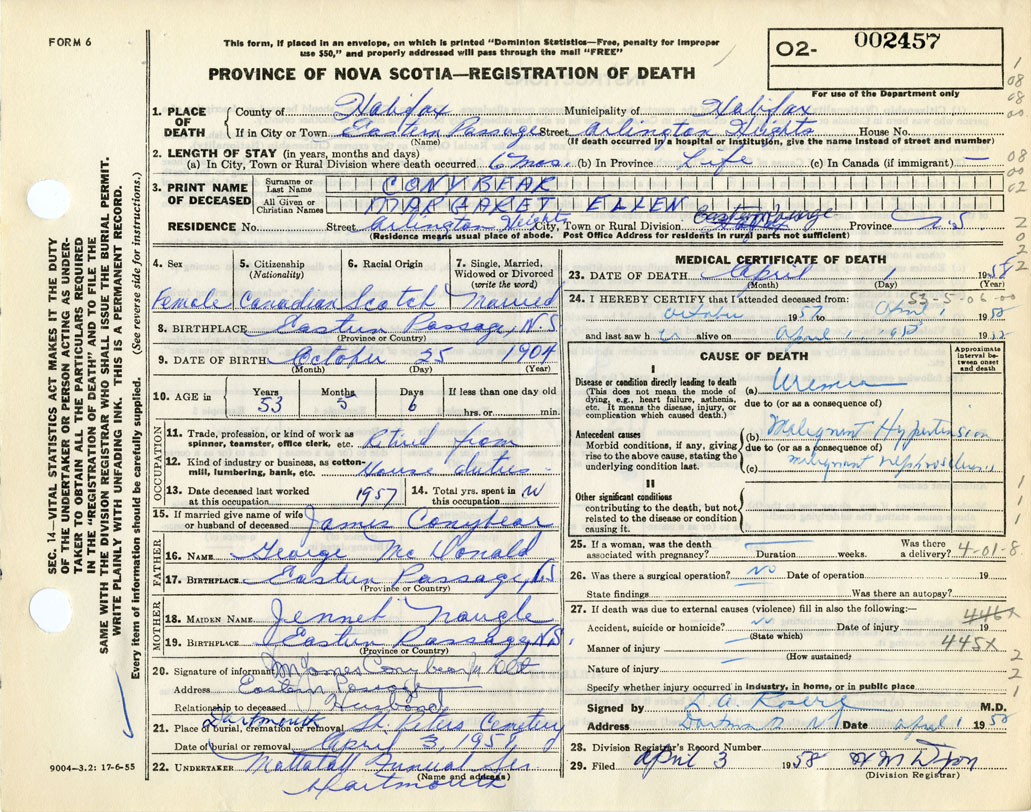 FORM 6
This form, if placed in an envelope, on which is printed "Dominion Statistics—Free, penalty for improper
use $50," and properly addressed will pass through the mail "FREE"
PROVINCE OF NOVA SCOTIA—REGISTRATION OF DEATH
02- 002457
For use of the Department only
1. PLACE OF DEATH County of Halifax Municipality of Halifax
If in City or Town Eastern Passage Street Arlington Heights House No.
(Name) (If death occurred in a hospital or institution, give the name instead of street and number)
2. LENGTH OF STAY (in years, months and days)
(a) In City, Town or Rural Division where death occurred 6 mos. (b) In Province Life (c) In Canada (if immigrant) —
3. PRINT NAME OF DECEASED Surname or Last Name CONYBEAR
All Given or Christian Names MARGARET ELLEN
RESIDENCE No. Street Arlington Heights City, Town or Rural Division Eastern Passage Province N.S
(Residence means usual place of abode. Post Office Address for residents in rural parts not sufficient)
4. Sex 5. Citizenship (Nationality) 6. Racial Origin 7. Single, Married, Widowed or Divorced (write the word)
Female Canadian Scotch Married
8. BIRTHPLACE Eastern Passage, N.S
(Province or Country)
9. DATE OF BIRTH October 25 1904
(Month) (Day) (Year)
10. AGE in Years Months Days If less than one day old
53 5 6 hrs. or min.
OCCUPATION
11. Trade, profession, or kind of work as spinner, teamster, office clerk, etc. Retired from
12. Kind of industry or business, as cotton-mill, lumbering, bank, etc. House duties
13. Date deceased last worked at this occupation 1957 14. Total yrs. spent in this occupation
15. If married give name of wife or husband of deceased James Conybear
FATHER
16. NAME George McDonald
17. BIRTHPLACE Eastern Passage, N.S
(Province or Country)
MOTHER
18. MAIDEN NAME Jennet Naugle
19. BIRTHPLACE Eastern Passage N.S.
(Province or Country)
20. Signature of informant James Conybear
Address Eastern Passage
Relationship to deceased Husband
21. Place of burial, cremation or removal Dartmouth St. Peters Cemetery
Date of burial or removal April 3, 195
22. UNDERTAKER Mattatall Funeral
(Name and address)
Dartmouth
9004—3.2: 17-6-55
SEC. 14—VITAL STATISTICS ACT MAKES IT THE DUTY
OF THE UNDERTAKER OR PERSON ACTING AS UNDER-
TAKER TO OBTAIN ALL THE PARTICULARS REQUIRED
IN THE "REGISTRATION OF DEATH" AND TO FILE THE
SAME WITH THE DIVISION REGISTRAR WHO SHALL ISSUE THE BURIAL PERMIT.
WRITE PLAINLY WITH UNFADING INK. THIS IS A PERMANENT RECORD.
Every item of information should be carefully supplied. (See reverse side for instructions.)
MEDICAL CERTIFICATE OF DEATH
23. DATE OF DEATH April 1 1958
(Month) (Day) (Year)
53-5-06-00
24. I HEREBY CERTIFY that I attended deceased from:
October 1957 to April 1 1958
and last saw h alive on April 1 19
CAUSE OF DEATH
Approximate interval between onset and death
I
Disease or condition directly leading to death
(This does not mean the mode of dying, e.g., heart failure, asthenia, etc. It means the disease, injury, or complication which caused death.)
(a) Uremia
due to (or as a consequence of)
Antecedent causes
Morbid conditions, if any, giving rise to the above cause, stating the underlying condition last.
(b) Malignant Hypertension
due to (or as a consequence of)
(c) malignant nephrosclerosis
II
Other significant conditions
contributing to the death, but not related to the disease or condition causing it.
25. If a woman, was the death associated with pregnancy? — Duration weeks. Was there a delivery? 4-01-8
26. Was there a surgical operation? No Date of operation 19
State findings Was there an autopsy?
27. If death was due to external causes (violence) fill in also the following:— 446x
Accident, suicide or homicide? No Date of injury 19
(State which) 445X
Manner of injury
(How sustained)
Nature of injury
Specify whether injury occurred in industry, in home, or in public place
Signed by M.D.
Address Date April 1 1958
28. Division Registrar's Record Number
29. Filed April 3 1958
(Division Registrar)